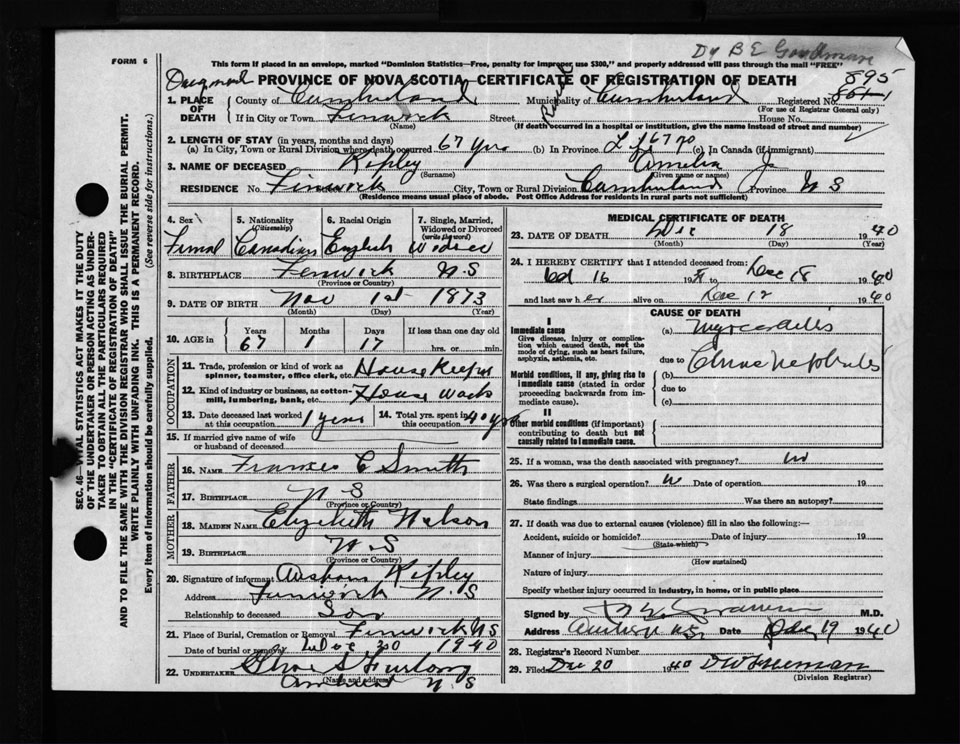 Dr B E Goodman
FORM 6
This form if placed in an envelope, marked "Dominion Statistics—Free, penalty for improper use $300," and properly addressed will pass through the mail "FREE"
PROVINCE OF NOVA SCOTIA—CERTIFICATE OF REGISTRATION OF DEATH
895
1. PLACE OF DEATH
County of Cumberland Municipality of Cumberland Registered No.
(For use of Registrar General only)
If in City or Town Fenwick Street House No.
(Name) (If death occurred in a hospital or institution, give the name instead of street and number)
2. LENGTH OF STAY (in years, months and days)
(a) In City, Town or Rural Division where death occurred 67 yrs (b) In Province (c) In Canada (if immigrant)
3. NAME OF DECEASED Ripley Amelia J
(Surname) (Given name or names)
RESIDENCE No. Fenwick City, Town or Rural Division Cumberland Province N S
(Residence means usual place of abode. Post Office Address for residents in rural parts not sufficient)
4. Sex 5. Nationality 6. Racial Origin 7. Single, Married,
(Citizenship) Widowed or Divorced
(write the word)
Femal Canadian English
8. BIRTHPLACE Fenwick N.S
(Province or Country)
9. DATE OF BIRTH Nov 1st 1873
(Month) (Day) (Year)
10. AGE in Years Months Days If less than one day old
67 1 17 hrs. or min.
OCCUPATION
11. Trade, profession or kind of work as House Keeper
spinner, teamster, office clerk, etc.
12. Kind of industry or business, as cotton- House work
mill, lumbering, bank, etc.
13. Date deceased last worked 1 year 14. Total yrs. spent in 40 yrs
at this occupation this occupation
15. If married give name of wife
or husband of deceased
FATHER
16. NAME Frances C Smith
17. BIRTHPLACE N S
(Province or Country)
MOTHER
18. MAIDEN NAME Elizabeth Nelson
19. BIRTHPLACE N S
(Province or Country)
20. Signature of informant Ripley
Address Fenwick N.S
Relationship to deceased Son
21. Place of Burial, Cremation or Removal Fenwick NS
Date of burial or removal Dec 20 1940
22. UNDERTAKER S Furlong
(Name and address)
Amherst N.S
MEDICAL CERTIFICATE OF DEATH
23. DATE OF DEATH Dec 18 1940
(Month) (Day) (Year)
24. I HEREBY CERTIFY that I attended deceased from:
Oct 16 19 to Dec 18 1940
and last saw her alive on Dec 12 1940
CAUSE OF DEATH
I
Immediate cause (a) Myocarditis
Give disease, injury or complication which caused death, not the mode of dying, such as heart failure, asphyxia, asthenia, etc.
due to
(b) Chronic Nephritis
Morbid conditions, if any, giving rise to immediate cause (stated in order proceeding backwards from immediate cause).
due to
(c)
II
Other morbid conditions (if important) contributing to death but not causally related to immediate cause.
25. If a woman, was the death associated with pregnancy? no
26. Was there a surgical operation? Date of operation 19
State findings Was there an autopsy?
27. If death was due to external causes (violence) fill in also the following:—
Accident, suicide or homicide? Date of injury 19
(State which)
Manner of injury
(How sustained)
Nature of injury
Specify whether injury occurred in industry, in home, or in public place
Signed by M.D.
Address Amherst N.S. Date Dec 19 1940
28. Registrar's Record Number
29. Filed Dec 20 1940
(Division Registrar)
SEC. 46—VITAL STATISTICS ACT MAKES IT THE DUTY
OF THE UNDERTAKER OR PERSON ACTING AS UNDER-
TAKER TO OBTAIN ALL THE PARTICULARS REQUIRED
IN THE "CERTIFICATE OF REGISTRATION OF DEATH"
AND TO FILE THE SAME WITH THE DIVISION REGISTRAR WHO SHALL ISSUE THE BURIAL PERMIT.
WRITE PLAINLY WITH UNFADING INK. THIS IS A PERMANENT RECORD.
Every item of information should be carefully supplied. (See reverse side for instructions.)